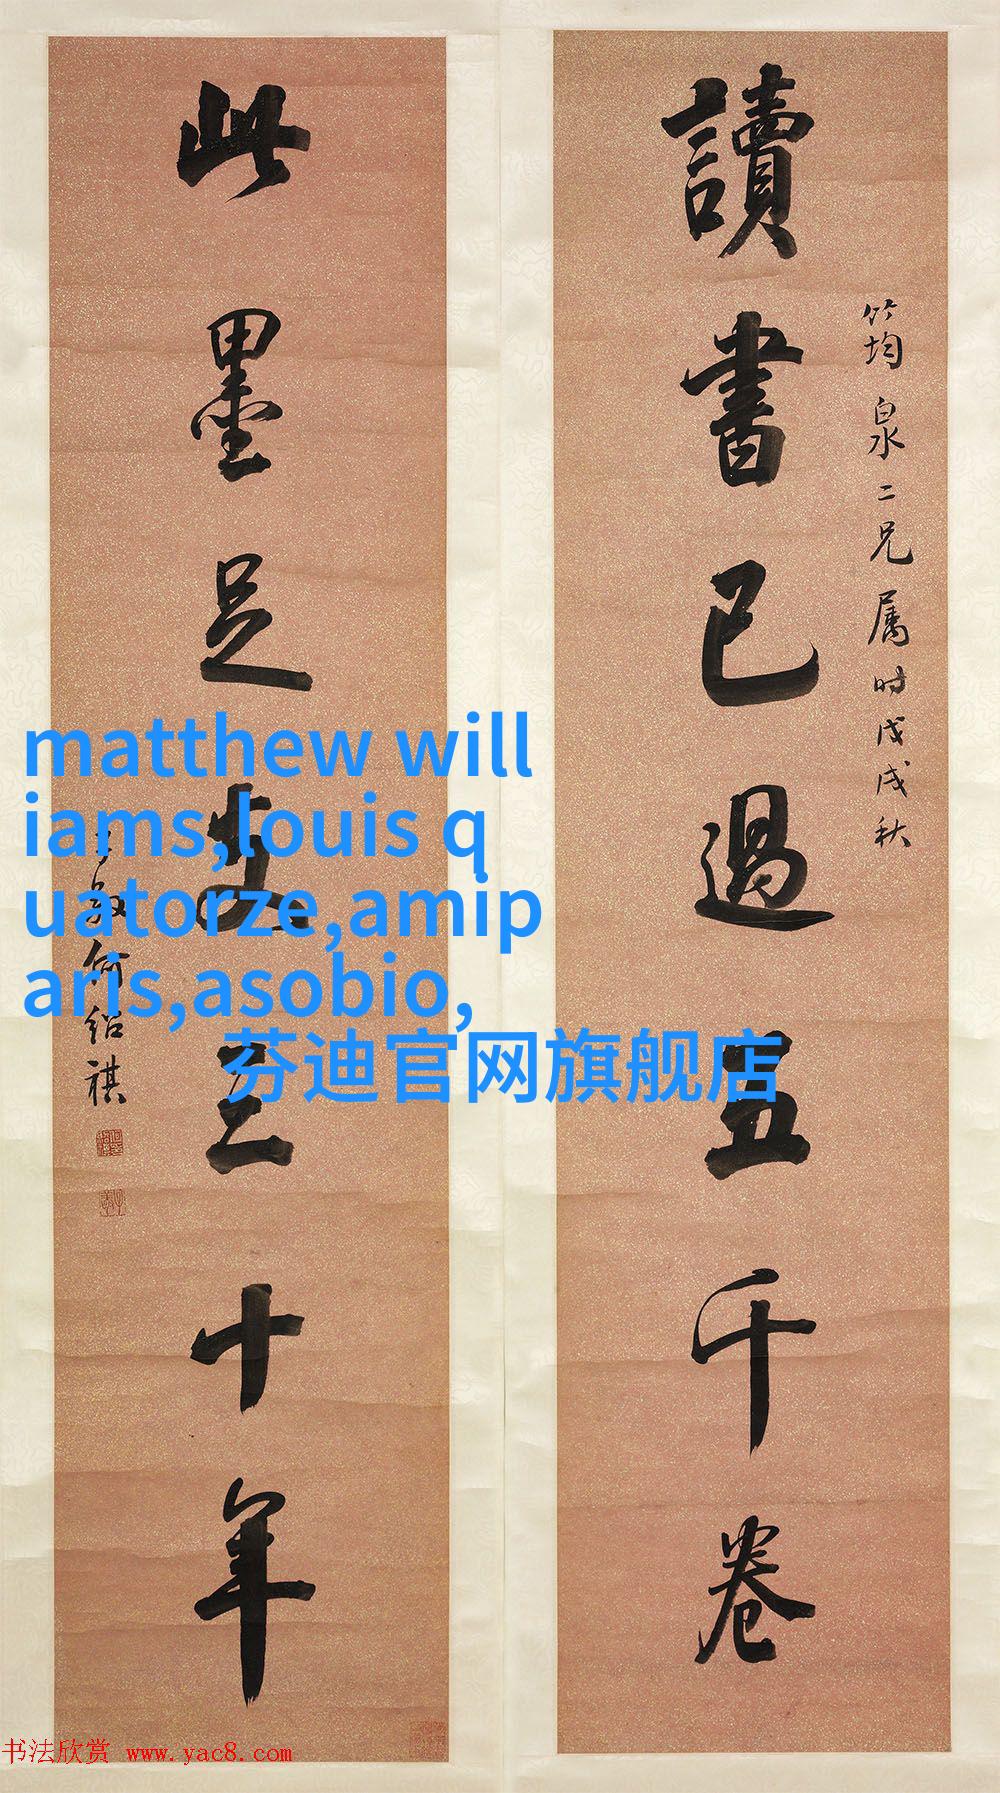 讀書已過五千卷
竹均泉二兄属時戊戌秋
此墨足支三十年
子敬何绍祺
matthew will
iams,louis q
uatorze,amip
aris,asobio,
芬迪官网旗舰店
书法欣赏 www.yac8.com